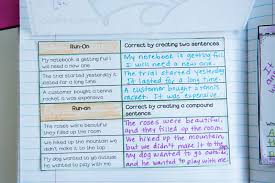 Run-On
Correct by creating two sentences
My notebook is getting full I
will need a new one.
My notebook is getting full.
I will need a new one.
The trial started yesterday it
lasted for a long time.
The trial started yesterday.
It lasted for a long time.
A customer bought a tennis
racket is was expensive.
A customer bought a tennis
racket. It was expensive.
Run-on
Correct by creating a compound
sentence
The roses were beautiful
they filled up the room.
The roses were beautiful,
and they filled up the room.
We hiked up the mountain we
didn't make it to the top.
We hiked up the mountain,
but we didn't make it to the top.
My dog wanted to go outside
he wanted to play with me.
My dog wanted to go outside,
and he wanted to play with me.